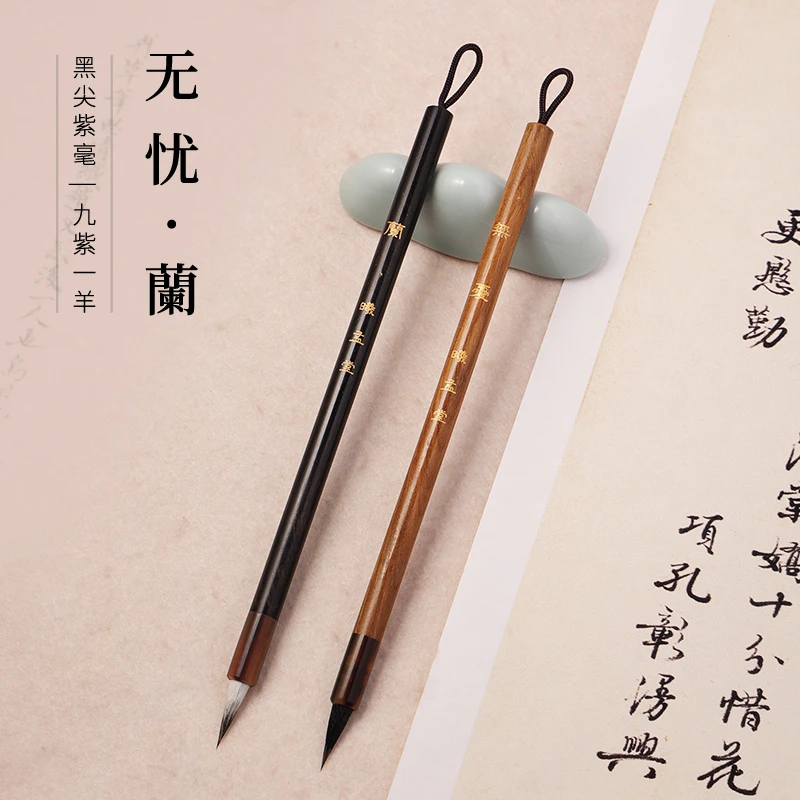 无忧·蘭
黑尖紫毫|九紫一羊
蘭
曦孟堂
無憂
曦孟堂
更慇勤
十分惜花
項孔彰漫興